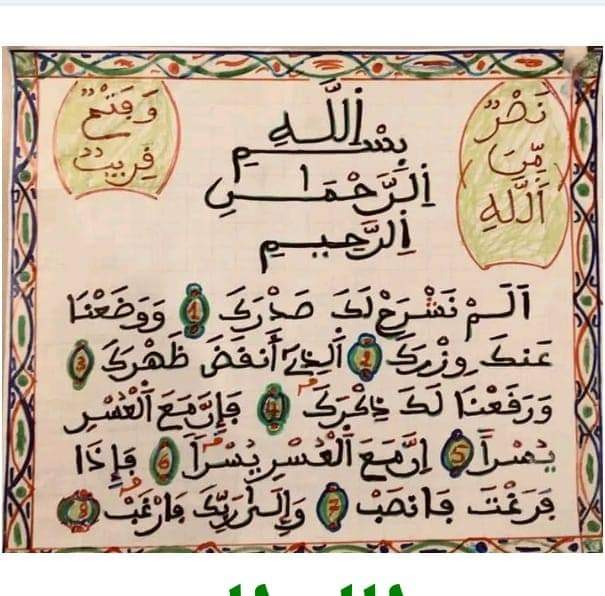 نَصْرٌ
مِّنَ
اَللَّهِ
وَفَتْحٌ
قَرِيبٌ
بِسْمِ اِللَّهِ
اِلرَّحْمَٰنِ
اِلرَّحِيمِ
اَلَمْ نَشْرَحْ لَكَ صَدْرَكَ 1 وَوَضَعْنَا
عَنكَ وِزْرَكَ 2 اَلذِےٓ أَنفَضَ ظَهْرَكَ 3
وَرَفَعْنَا لَكَ ذِكْرَكَ 4 فَإِنَّ مَعَ اَلْعُسْرِ
يُسْراً 5 اِنَّ مَعَ اَلْعُسْرِ يُسْراً 6 فَإِذَا
فَرَغْتَ فَانصَبْ 7 وَإِلَىٰ رَبِّكَ فَارْغَب 8